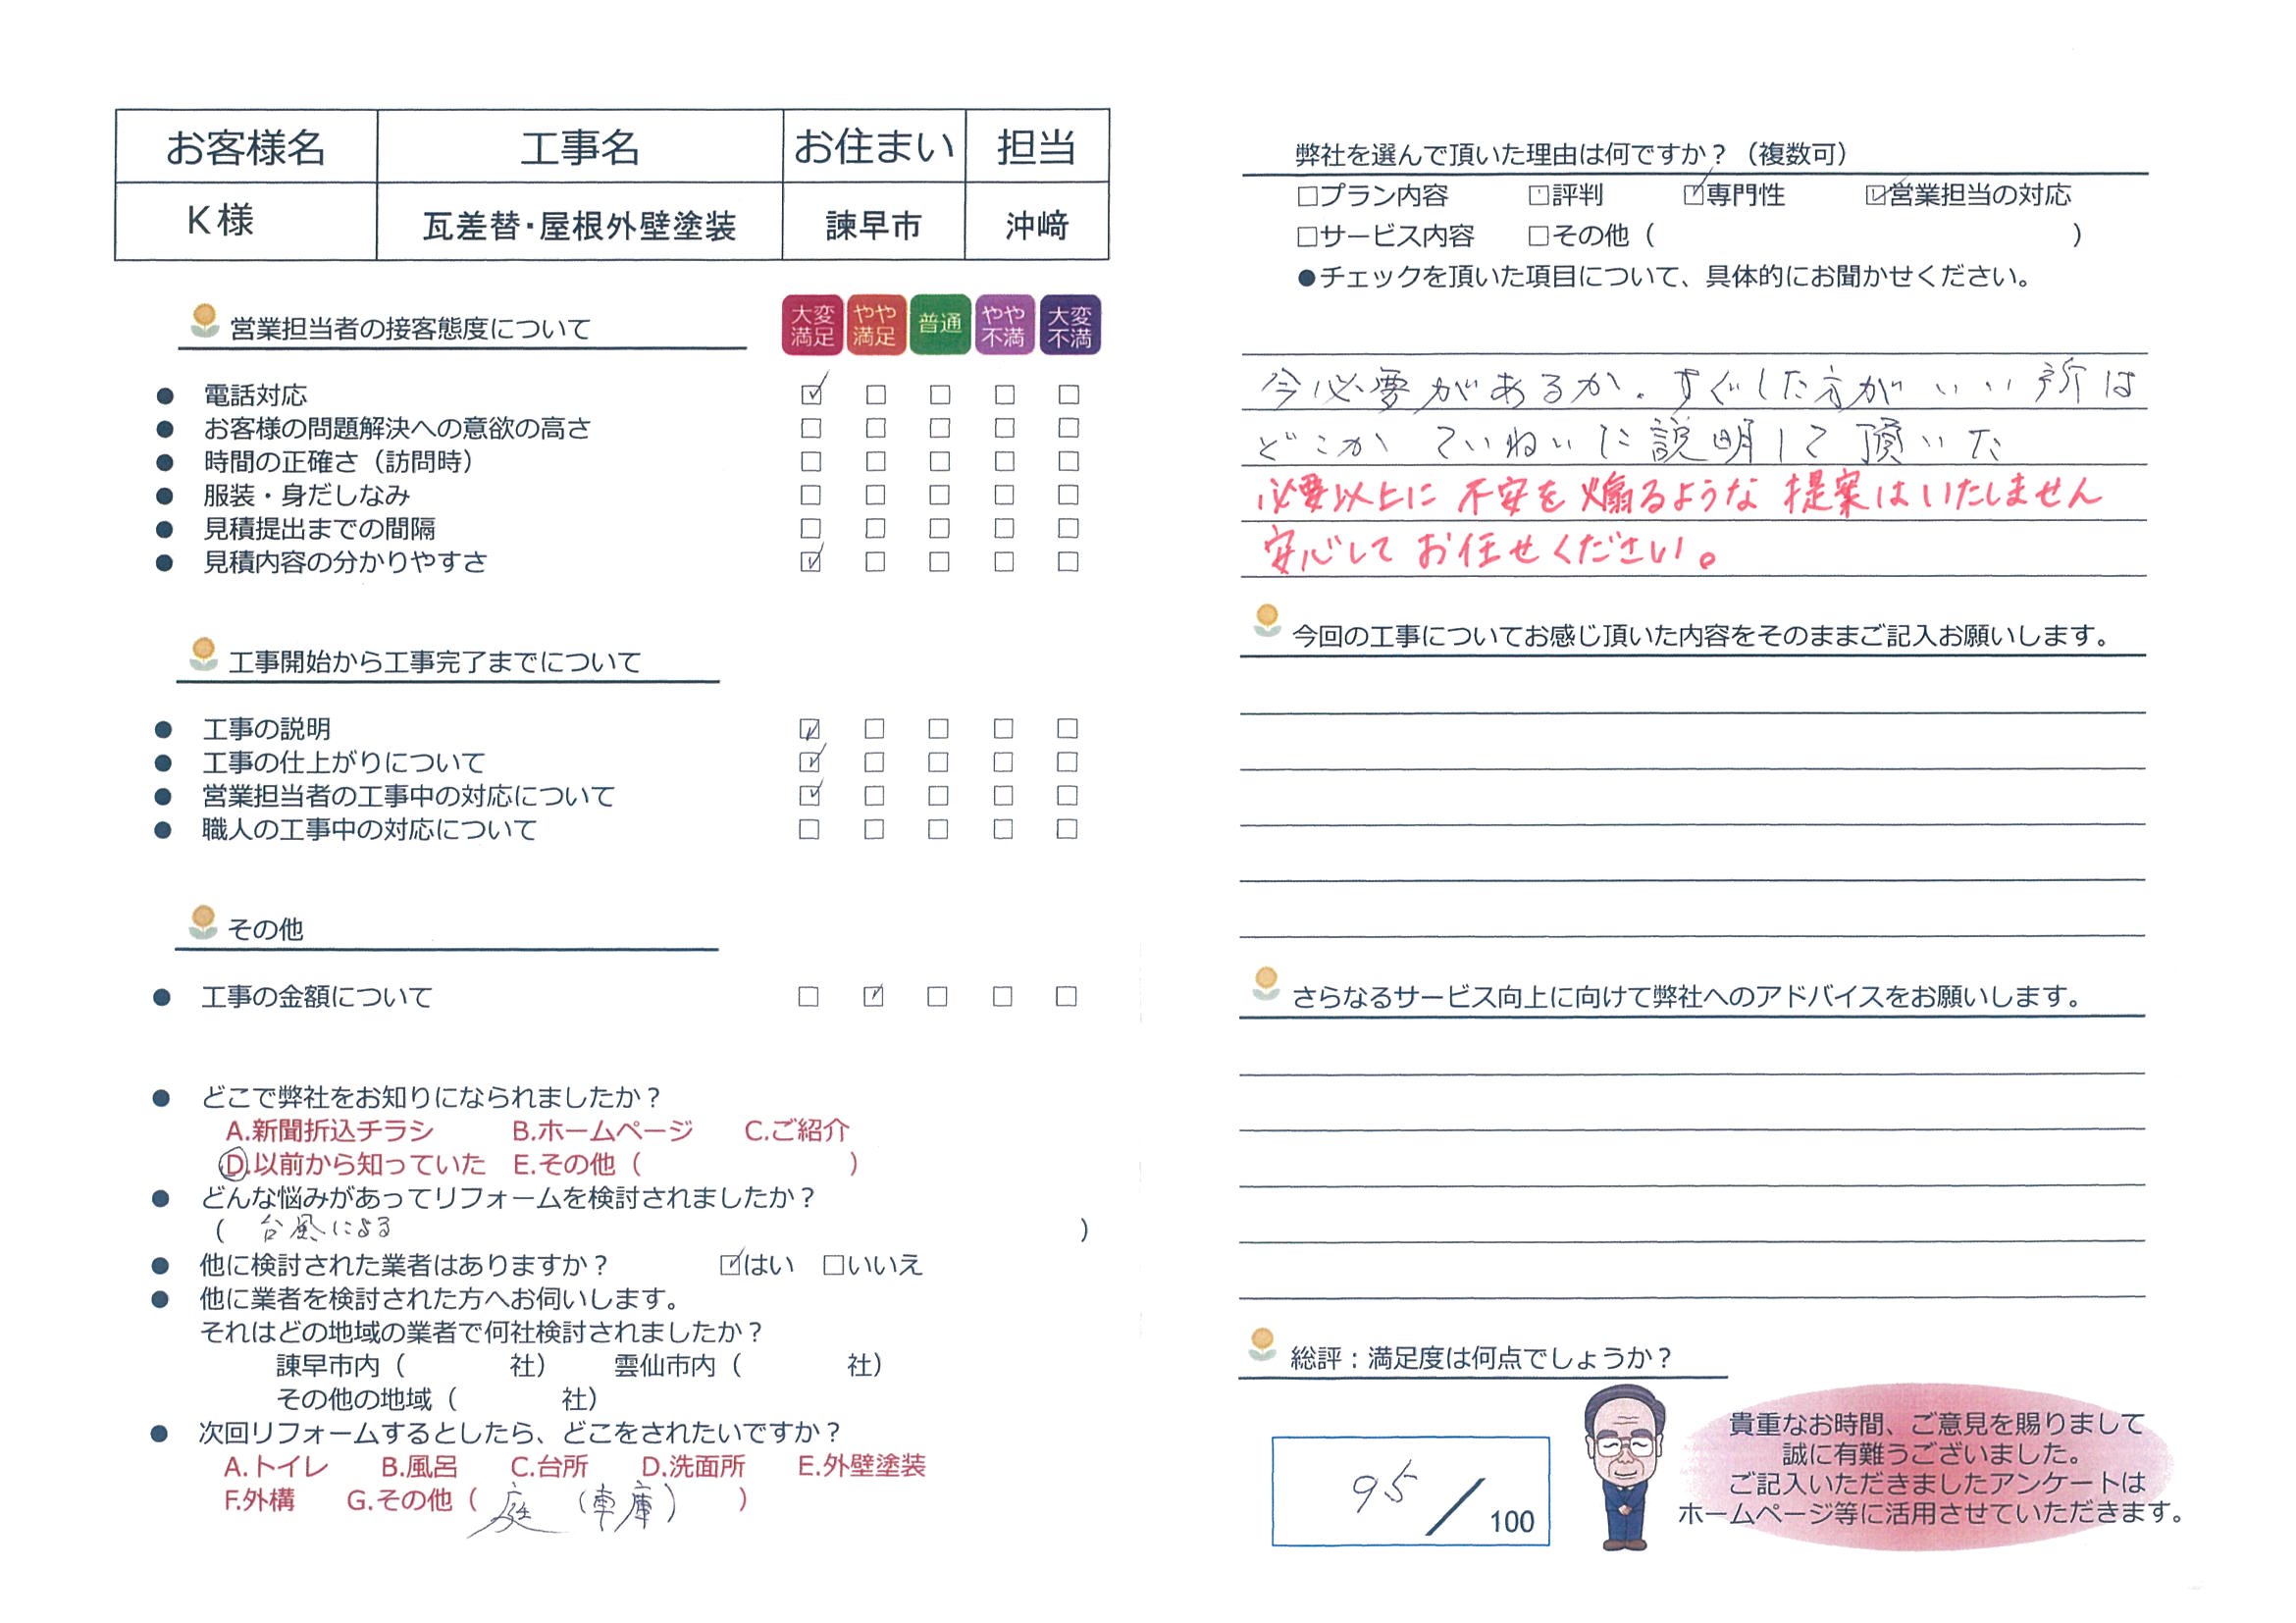 お客様名 工事名 お住まい 担当
K様 瓦差替・屋根外壁塗装 諫早市 沖﨑
営業担当者の接客態度について
大変満足 やや満足 普通 やや不満 大変不満
● 電話対応 ☑ □ □ □ □
● お客様の問題解決への意欲の高さ □ □ □ □ □
● 時間の正確さ（訪問時） □ □ □ □ □
● 服装・身だしなみ □ □ □ □ □
● 見積提出までの間隔 □ □ □ □ □
● 見積内容の分かりやすさ ☑ □ □ □ □
工事開始から工事完了までについて
● 工事の説明 ☑ □ □ □ □
● 工事の仕上がりについて ☑ □ □ □ □
● 営業担当者の工事中の対応について ☑ □ □ □ □
● 職人の工事中の対応について □ □ □ □ □
その他
● 工事の金額について □ ☑ □ □ □
● どこで弊社をお知りになられましたか？
A.新聞折込チラシ B.ホームページ C.ご紹介
D.以前から知っていた E.その他（ ）
● どんな悩みがあってリフォームを検討されましたか？
（ 台風による ）
● 他に検討された業者はありますか？ ☑はい □いいえ
● 他に業者を検討された方へお伺いします。
それはどの地域の業者で何社検討されましたか？
諫早市内（ 社） 雲仙市内（ 社）
その他の地域（ 社）
● 次回リフォームするとしたら、どこをされたいですか？
A.トイレ B.風呂 C.台所 D.洗面所 E.外壁塗装
F.外構 G.その他（ 庭 （車庫） ）
弊社を選んで頂いた理由は何ですか？（複数可）
□プラン内容 □評判 ☑専門性 ☑営業担当の対応
□サービス内容 □その他（ ）
●チェックを頂いた項目について、具体的にお聞かせください。
今必要があるか、すぐした方がいい所は
どこか ていねいに説明して頂いた
必要以上に不安を煽るような提案はいたしません
安心してお任せください。
今回の工事についてお感じ頂いた内容をそのままご記入お願いします。
さらなるサービス向上に向けて弊社へのアドバイスをお願いします。
総評：満足度は何点でしょうか？
95／100
貴重なお時間、ご意見を賜りまして
誠に有難うございました。
ご記入いただきましたアンケートは
ホームページ等に活用させていただきます。